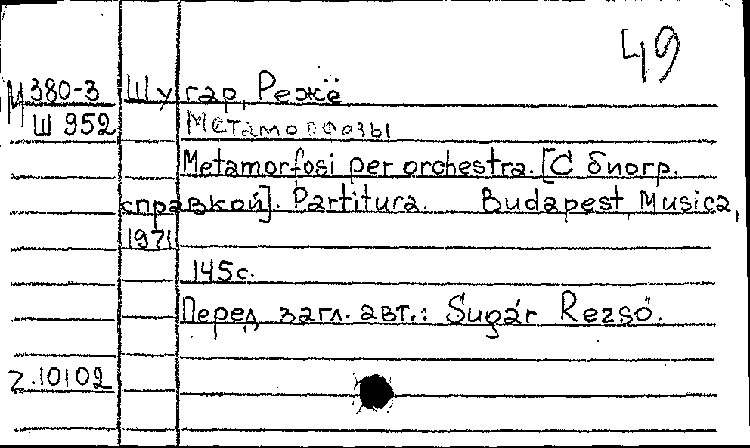 49
М380-3 Шугар, Режё
Ш 952 Метаморфозы
Metamorfosi per orchestra. [С биогр.
справкой]. Partitura. Budapest, Musica,
1971
145с.
Перед загл. авт.: Sugár Rezsó.
Z.10102